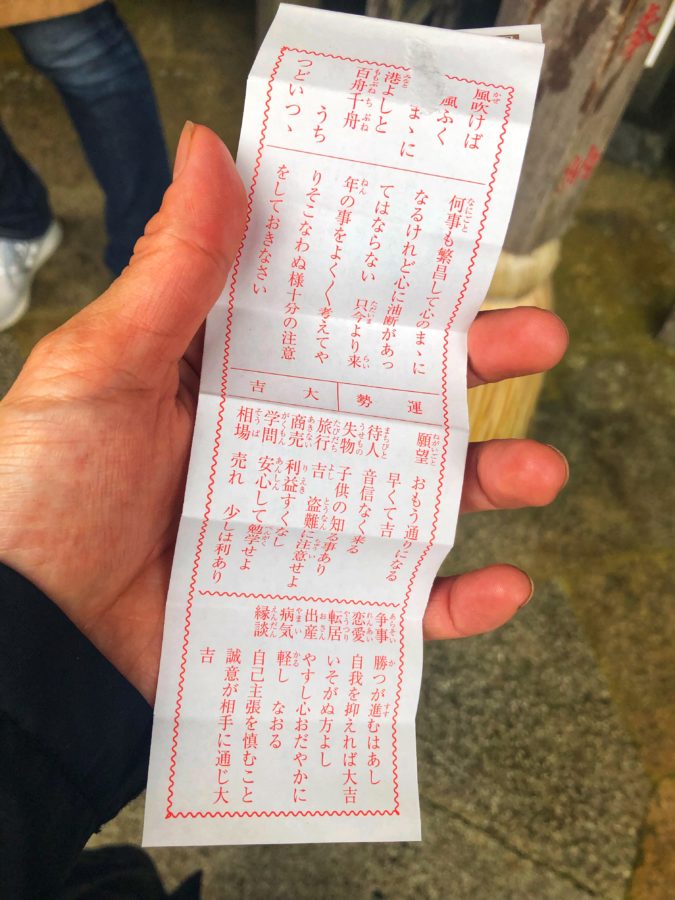 風吹けば
風ふく
まゝに
港よしと
百舟千舟
うち
つどいつゝ
何事も繁昌して心のまゝに
なるけれど心に油断があっ
てはならない 只今より来
年の事をよく〱考えてや
りそこなわぬ様十分の注意
をしておきなさい
運勢 大吉
願望 おもう通りになる
早くて吉
待人 音信なく来る
失物 子供の知る事あり
旅行 吉 盗難に注意せよ
商売 利益すくなし
学問 安心して勉学せよ
相場 売れ 少しは利あり
争事 勝つが進むはあし
恋愛 自我を抑えれば大吉
転居 いそがぬ方よし
出産 やすし心おだやかに
病気 軽し なおる
縁談 自己主張を慎むこと
誠意が相手に通じ大
吉